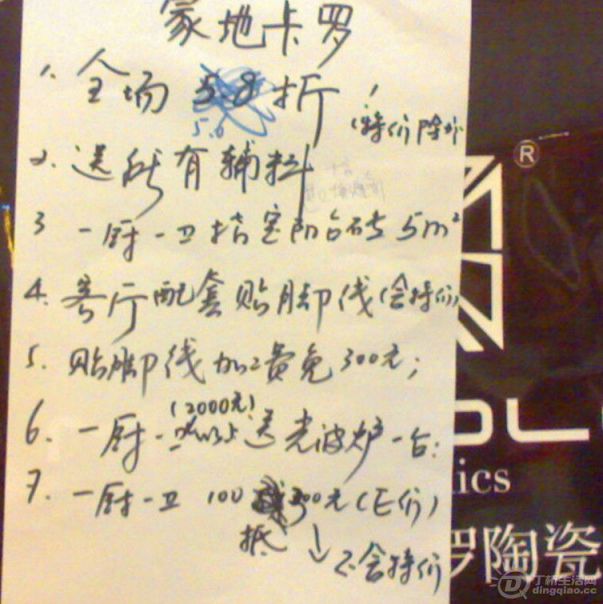 蒙地卡罗
1. 全场 58折,
5.6
(特价除外
2. 送所有辅料
3 一厨一卫指定阳台砖 5m²
4. 客厅配套贴脚线(含特价)
5. 贴脚线加工费免300元;
(2000元)
6. 一厨一卫以上送光波炉一台:
7. 一厨一卫 100抵300元(正价)
抵
不含特价
®
OL
ics
罗陶瓷
丁桥生活网
dingqiao.cc